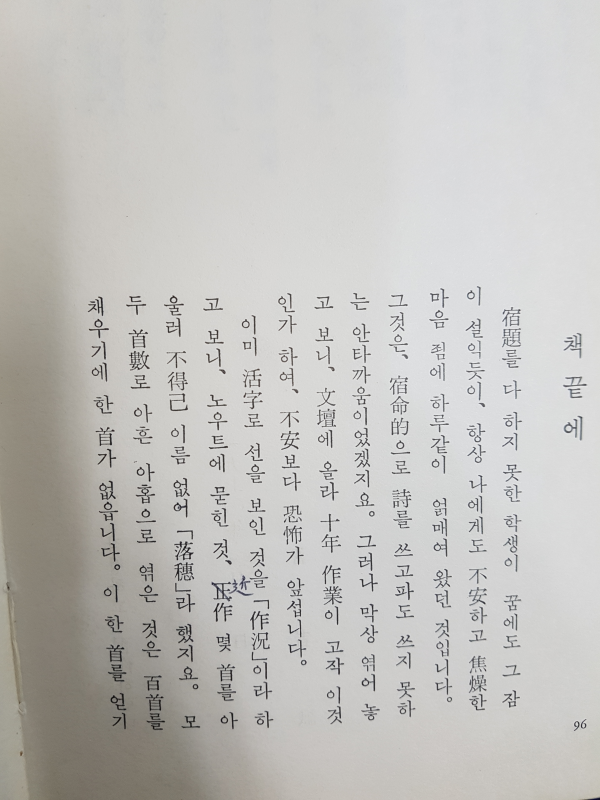 책 끝에
宿題를 다 하지 못한 학생이 꿈에도 그 잠
이 설익듯이, 항상 나에게도 不安하고 焦燥한
마음 죔에 하루같이 얽매여 왔던 것입니다.
그것은, 宿命的으로 詩를 쓰고파도 쓰지 못하
는 안타까움이었겠지요. 그러나 막상 엮어 놓
고 보니, 文壇에 올라 十年 作業이 고작 이것
인가 하여, 不安보다 恐怖가 앞섭니다.
이미 活字로 선을 보인 것을 「作況」이라 하
고 보니, 노우트에 묻힌 것, 正作 몇 首를 아
近
울러 不得己 이름 없어 「落穗」라 했지요. 모
두 首數로 아흔 아홉으로 엮은 것은 百首를
채우기에 한 首가 없읍니다. 이 한 首를 얻기
96